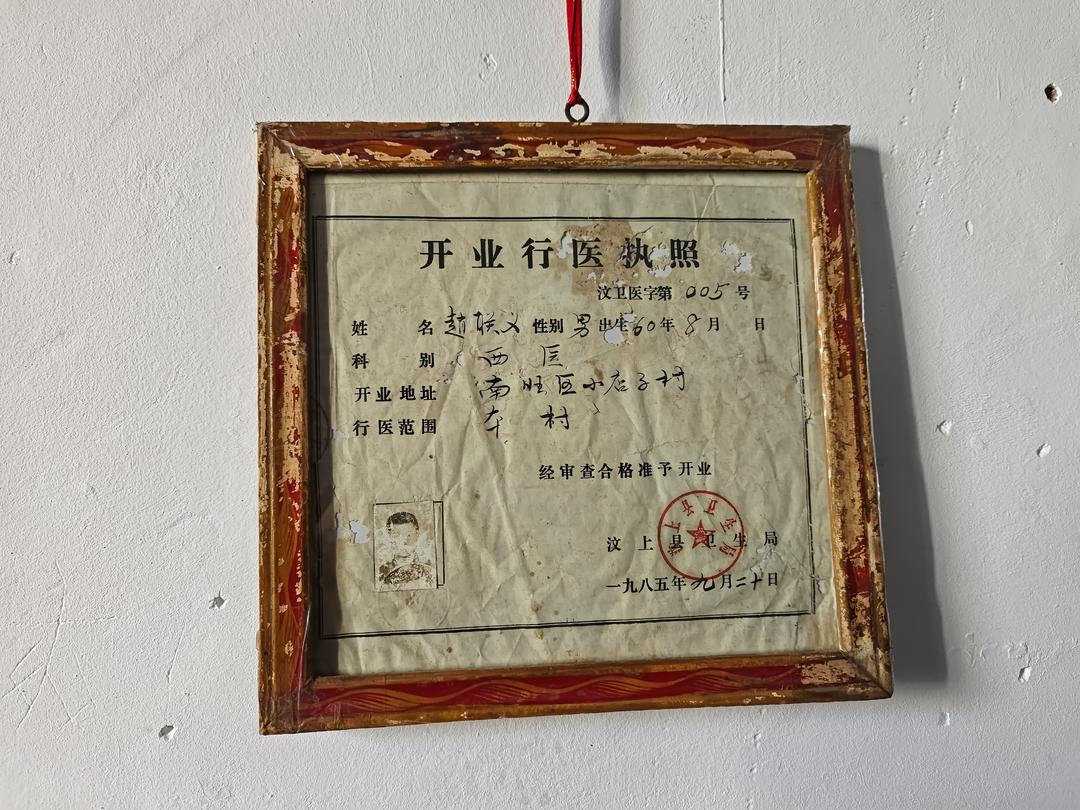 开业行医执照
汶卫医字第 005 号
姓名 赵联义 性别 男 出生 60年 8月 日
科别 西医
开业地址 南旺区小店子村
行医范围 本村
经审查合格准予开业
汶上县卫生局
汶上县卫生局
一九八五年九月二十日